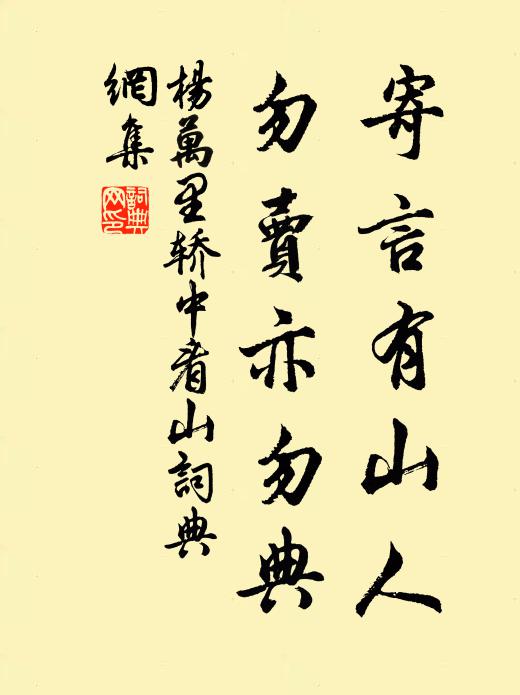 寄言有山人
勿賣亦勿典
楊萬里轿中看山詞典
網集
詞典
网印